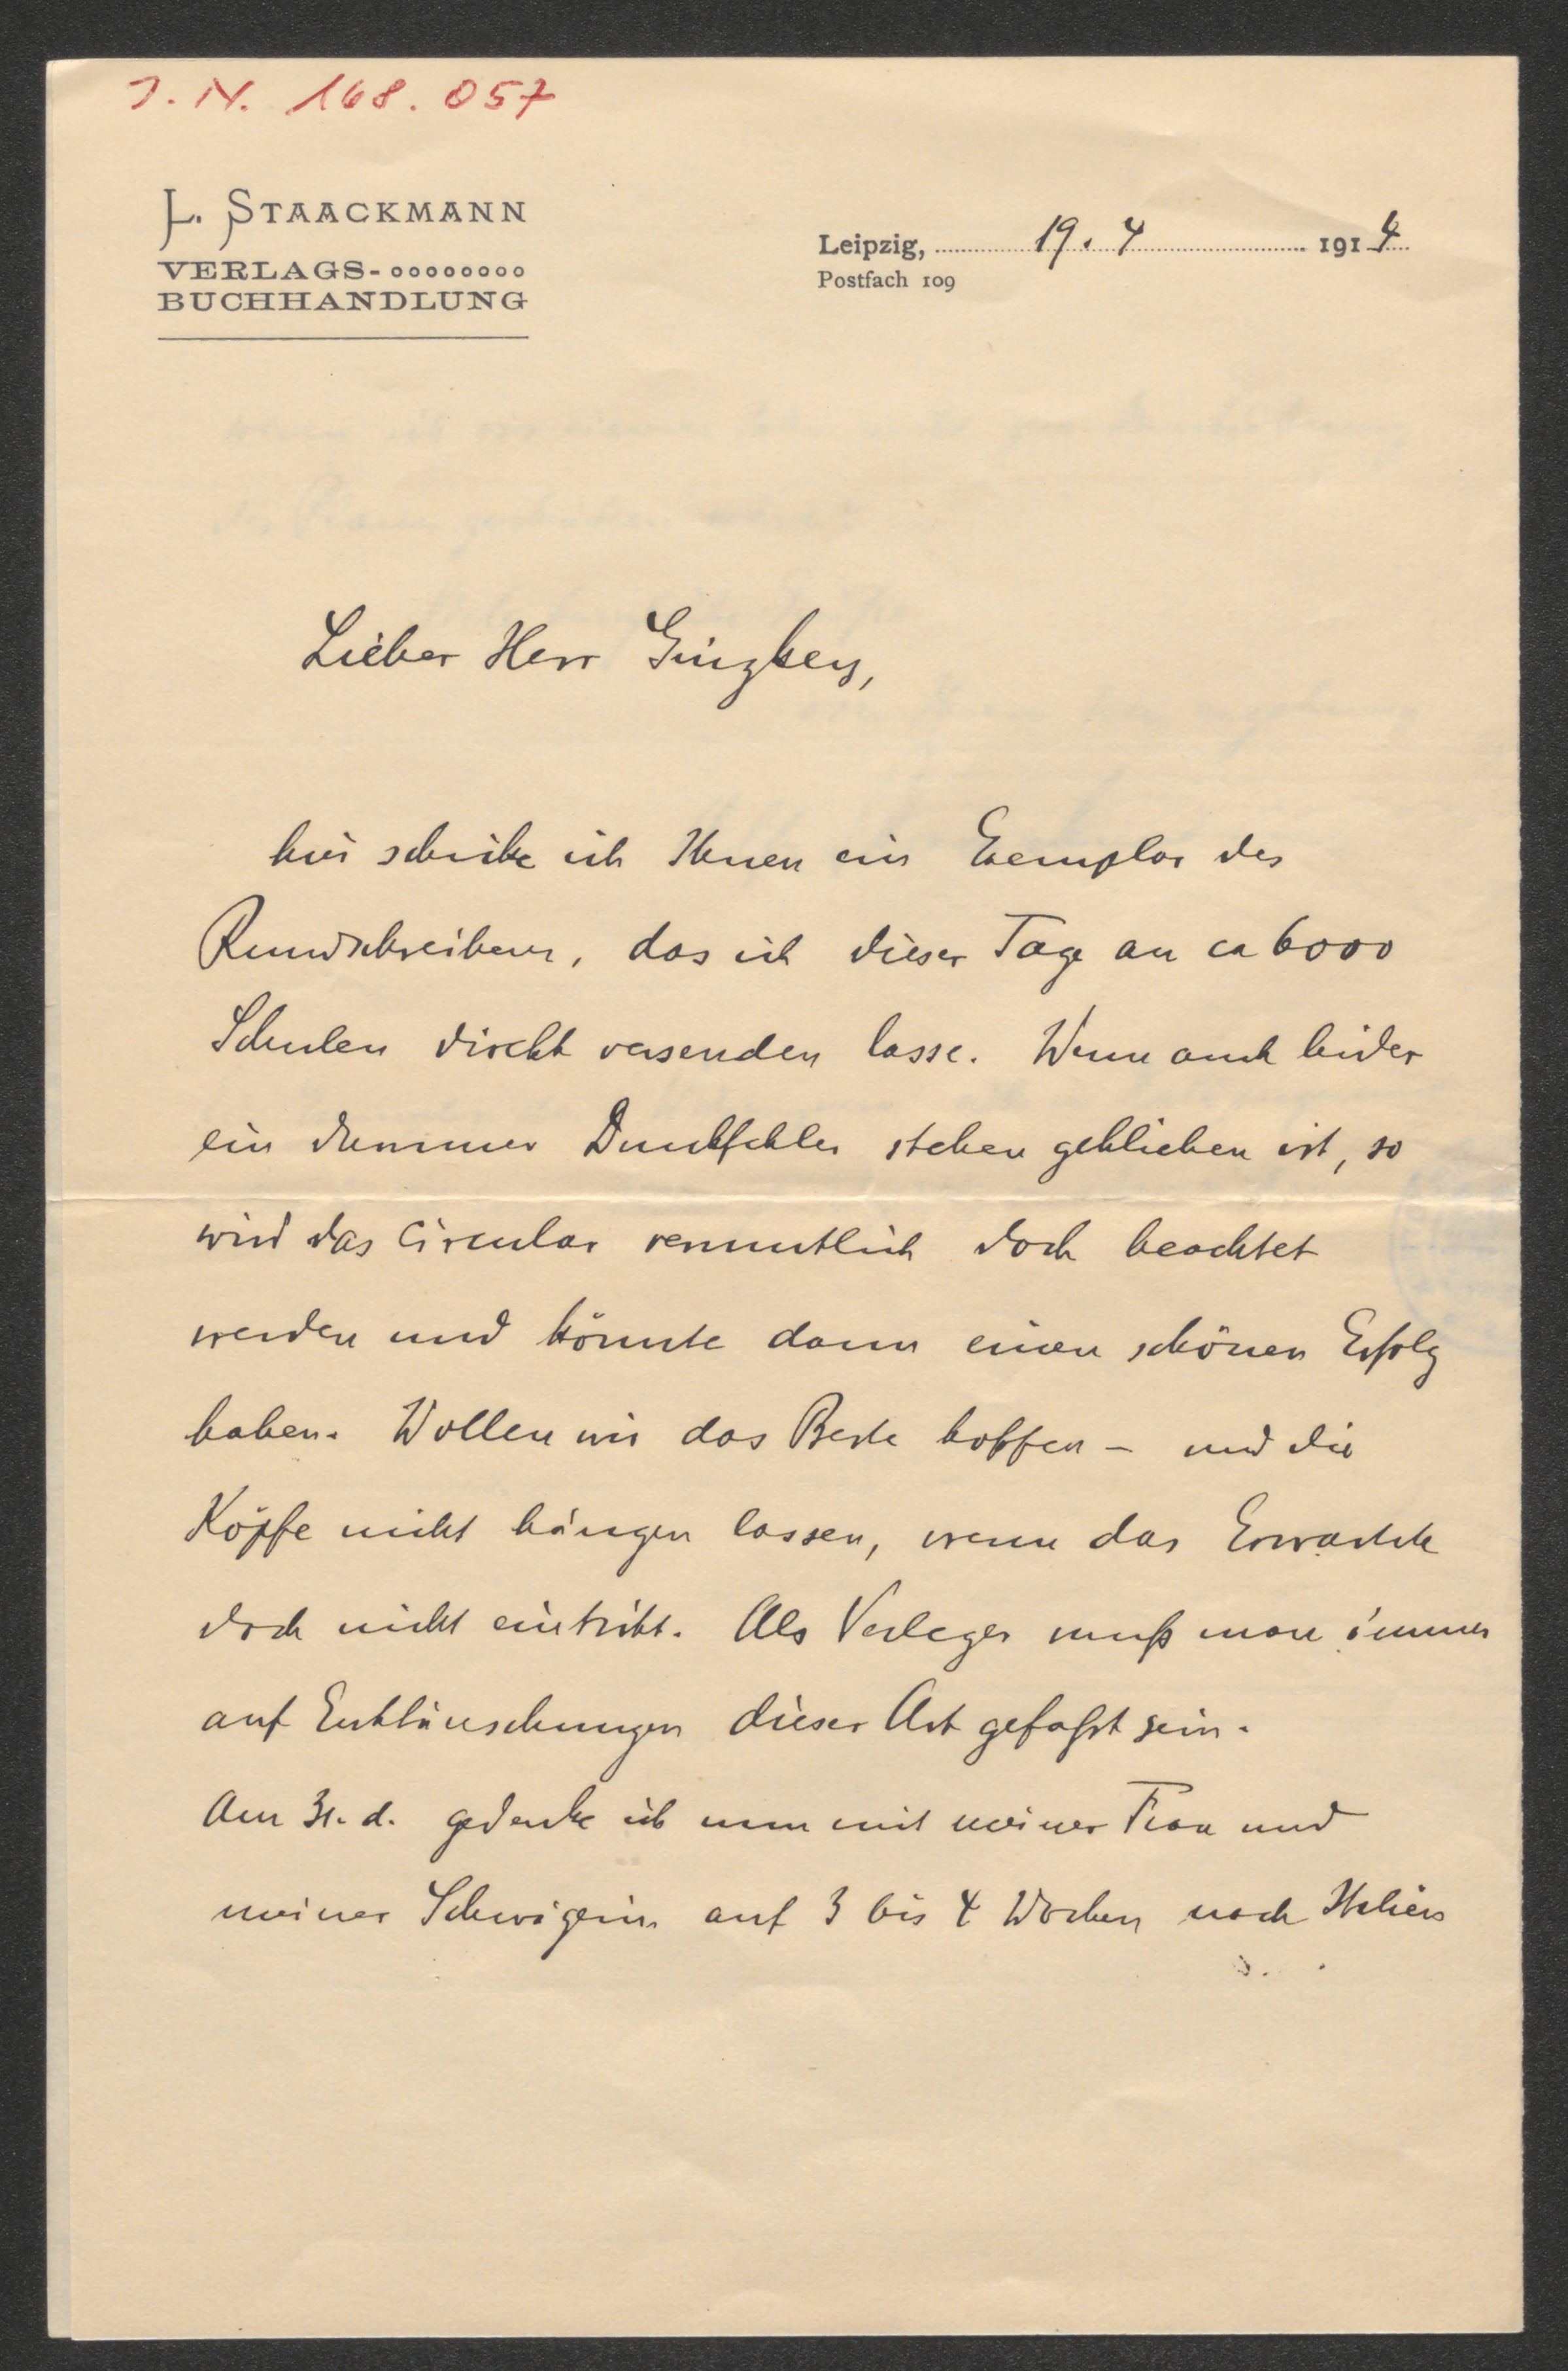 J. N. 168.057
L. STAACKMANN
VERLAGS-oooooooo
BUCHHANDLUNG
Leipzig, 19. 4 1914
Postfach 109
Lieber Herr Ginzkey,
hier schicke ich Ihnen ein Exemplar des
Rundschreibens, das ich dieser Tage an ca 6000
Schulen direkt versenden lasse. Wenn auch leider
ein dummer Druckfehler stehen geblieben ist, so
wird das Circular vermutlich doch beachtet
werden und könnte dann einen schönen Erfolg
haben. Wollen wir das Beste hoffen – und die
Köpfe nicht hängen lassen, wenn das Erwartete
doch nicht eintritt. Als Verleger muß man immer
auf Enttäuschungen dieser Art gefaßt sein.
Am d. gedenke ich nun mit meiner Frau und
meiner Schwägerin auf 3 bis 4 Wochen nach Italien